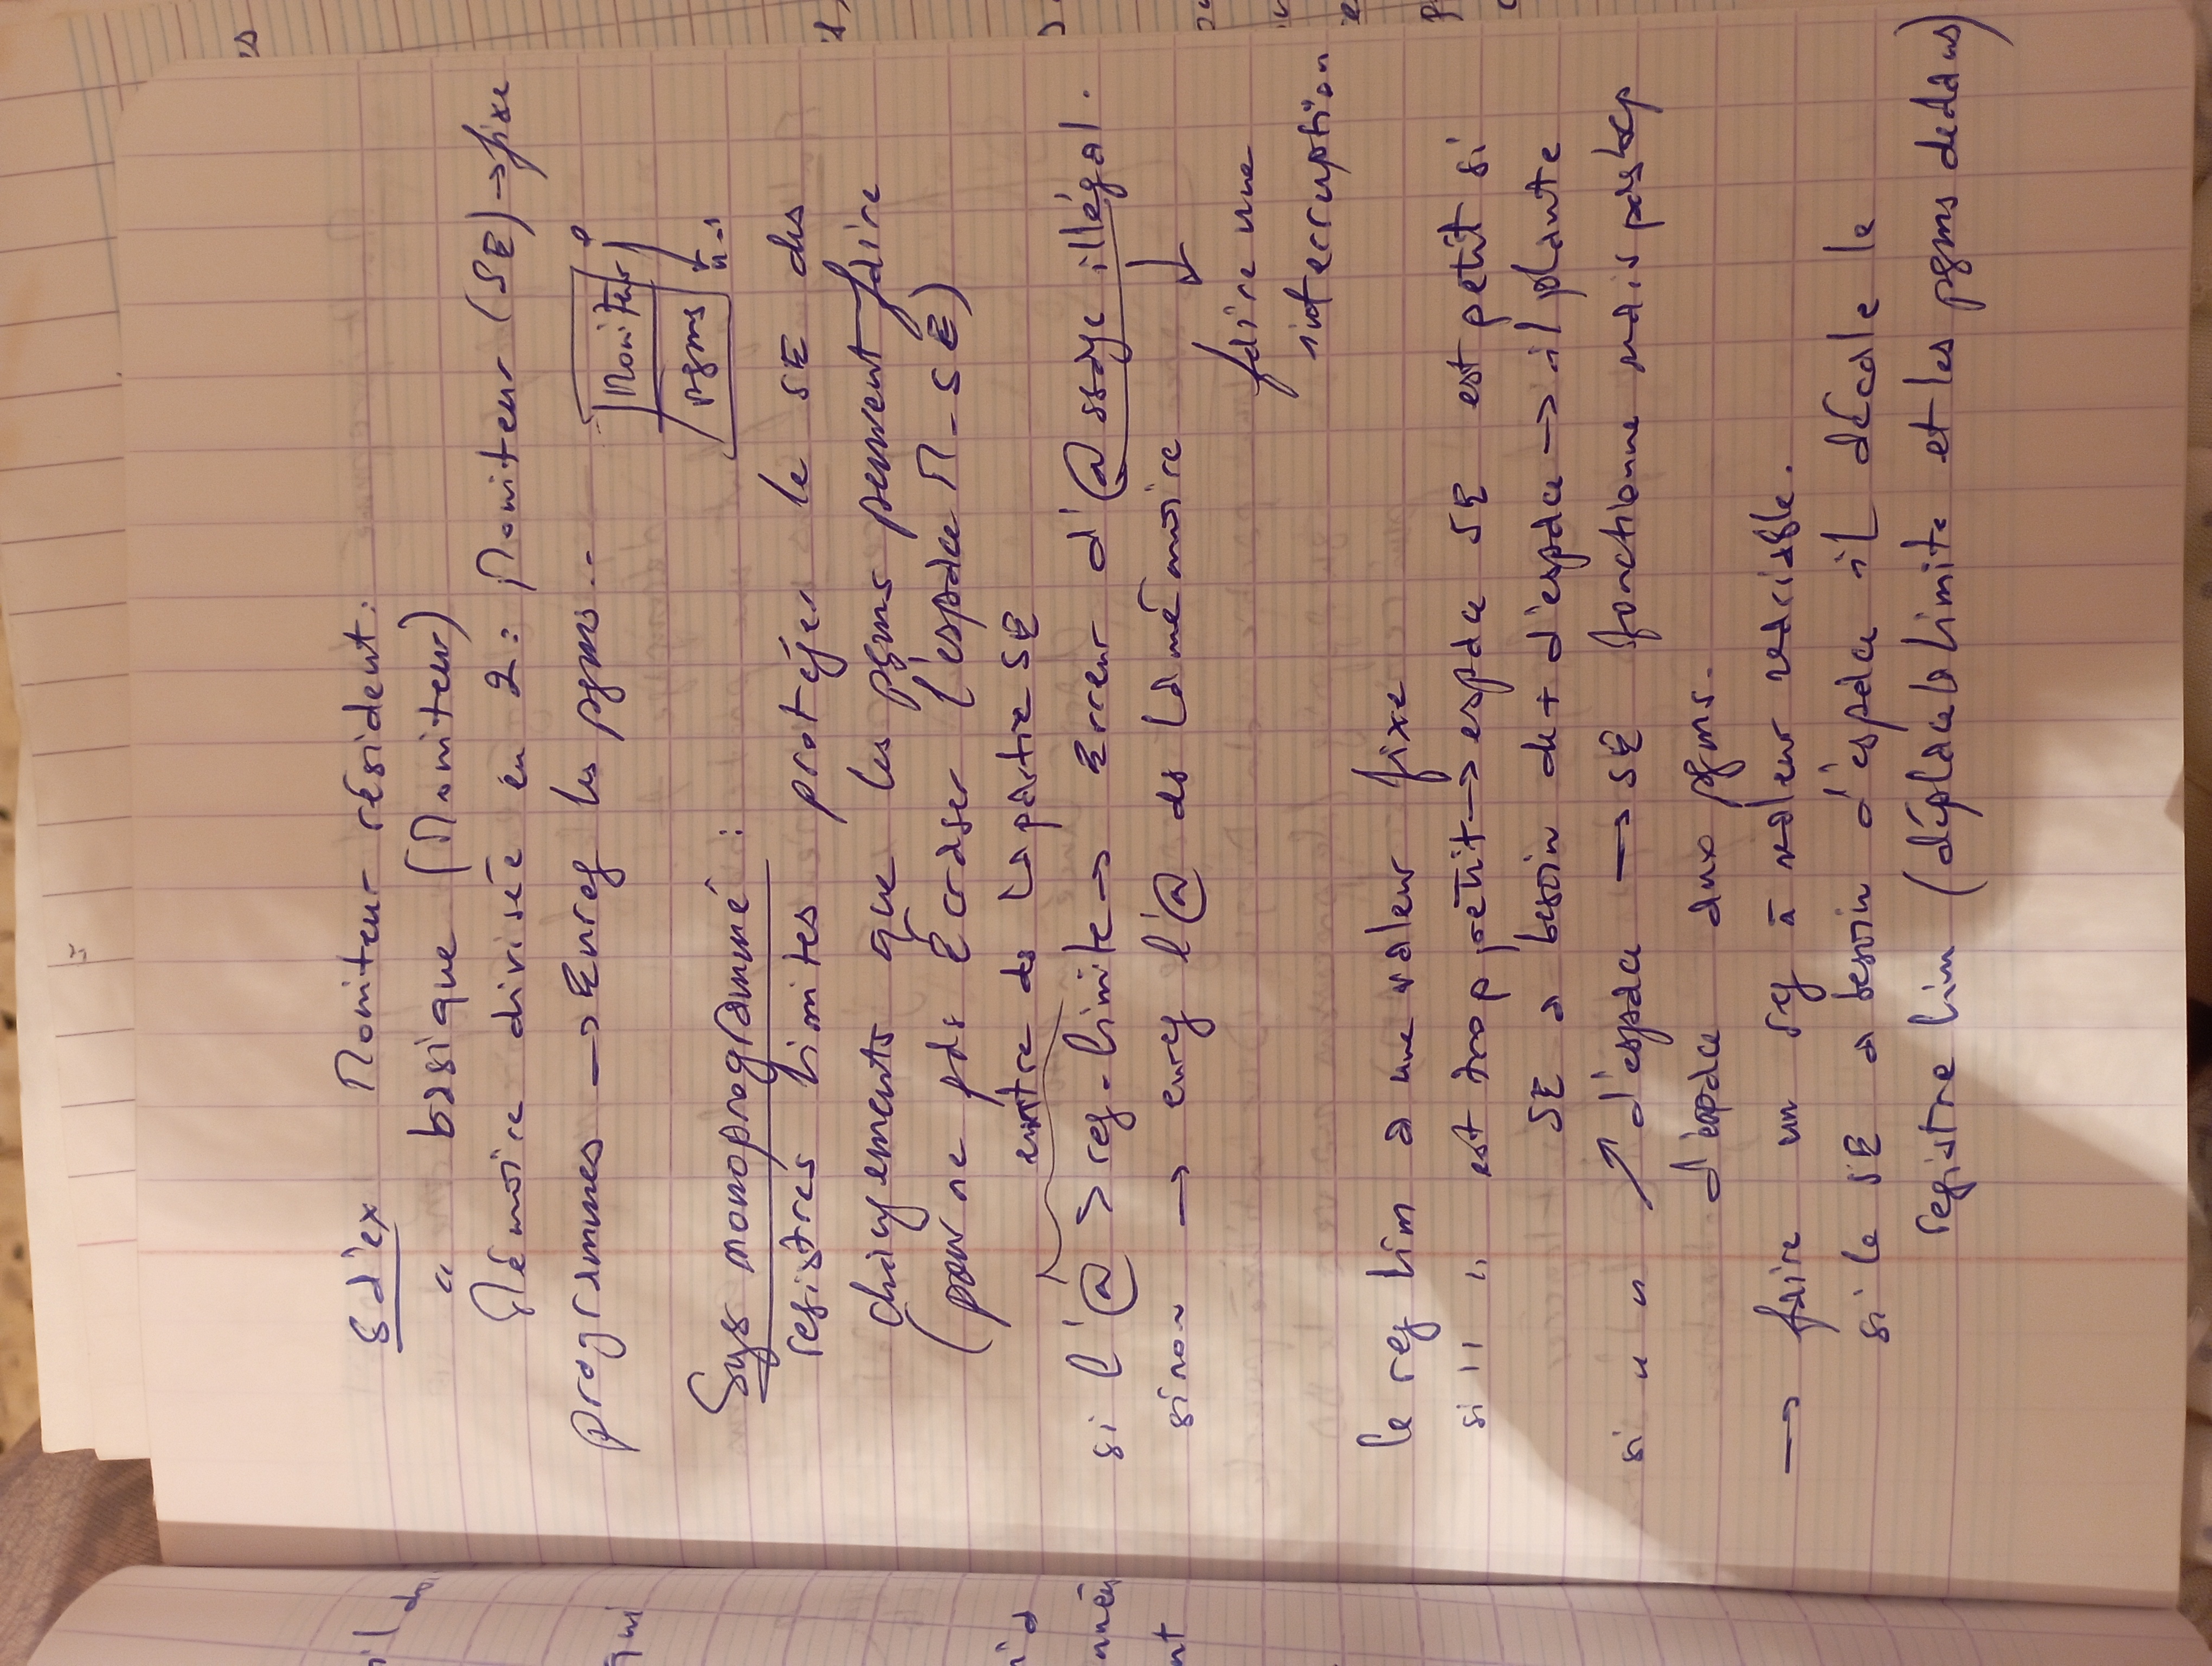 S d'ex Moniteur résident:
" basique (Moniteur)
Mémoire divisée en 2: Moniteur (SE) → fixe
programmes → Enreg les pgms..
Moniteur
pgms
0
n-1
Sys monoprogrammé :
registres limites protéger le SE des
changements que les pgms peuvent faire
(pour ne pas Écraser l'espace M-SE)
entre ds la partie SE
si l'@ > reg-limite → Erreur d'@ssage illégal.
sinon → enreg l'@ ds la mémoire
faire une
interruption
le reg lim a une valeur fixe
si " " est trop petit → espace SE est petit si
SE a besoin de + d'espace → il plante
si " " ↗ d'espace → SE fonctionne mais pas bcp
d'espace aux pgms.
→ faire un reg à valeur variable.
si le SE a besoin d'espace il décale le
registre lim (déplace la limite et les pgms dedans)